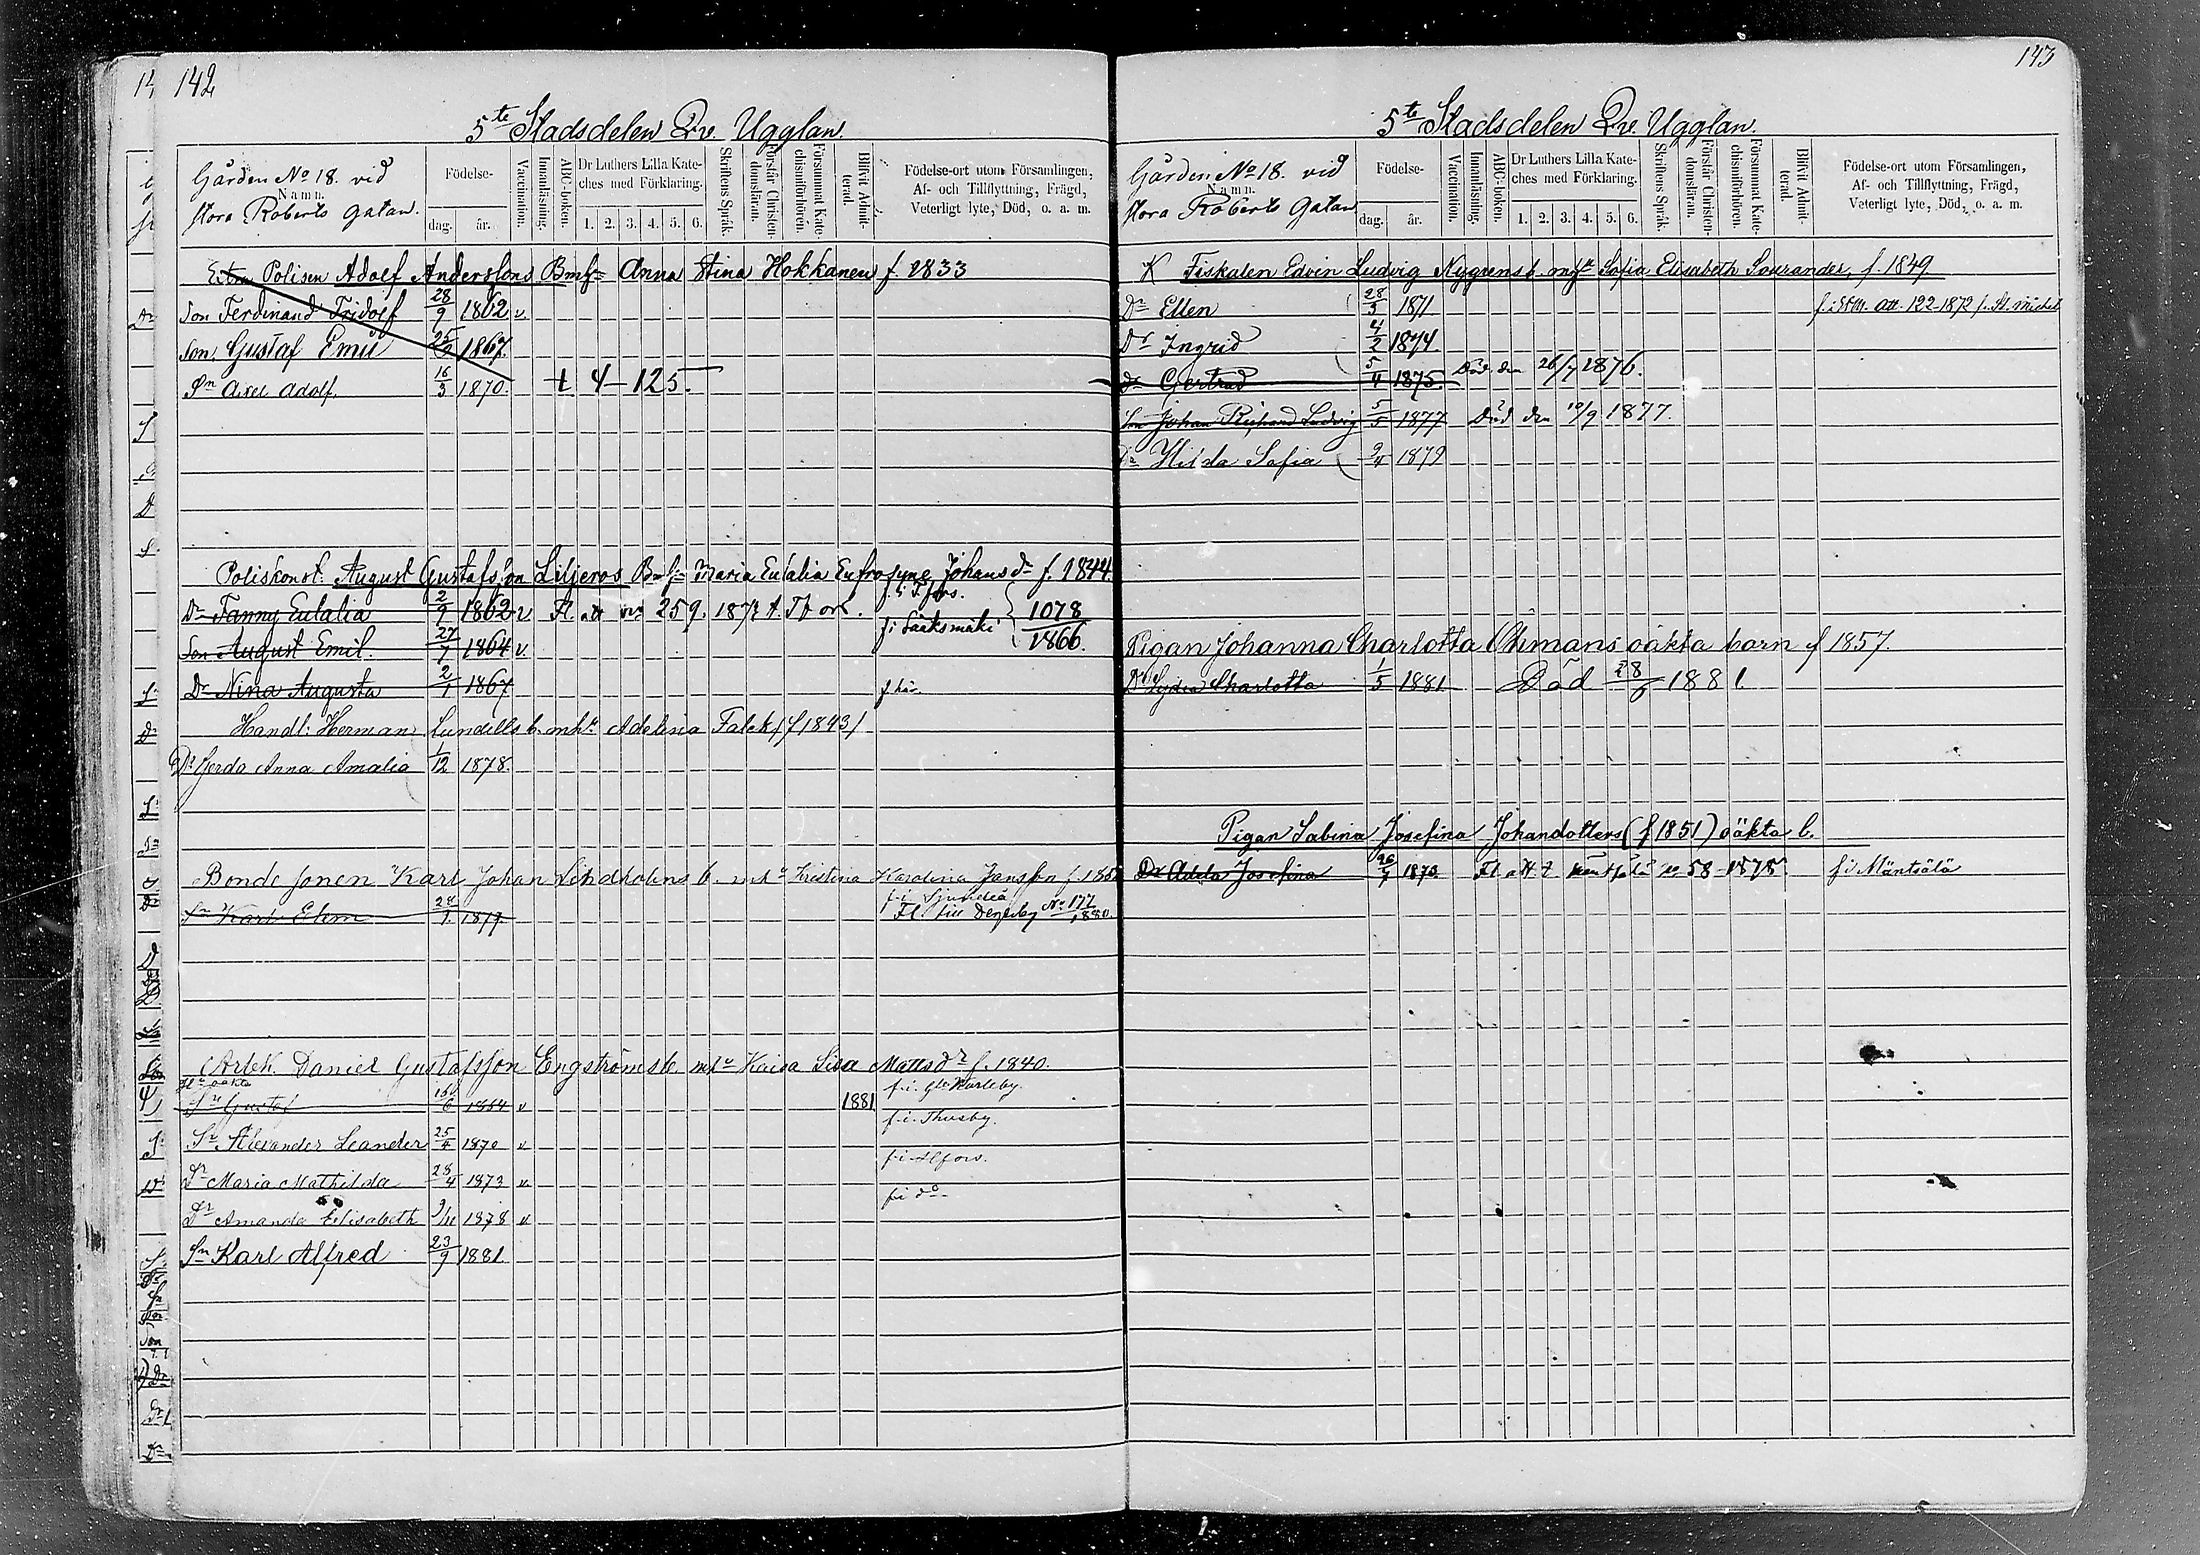 142
5te Stadsdelen Qv. Ugglan.
Gården No 18. vid
Namn.
stora Roberts gatan.
Födelse-
dag. år.
Vaccination.
Innanläsning.
ABC-boken.
Dr Luthers Lilla Kate-
ches med Förklaring.
1. 2. 3. 4. 5. 6.
Skriftens Språk.
Förstår Christen-
domsläran.
Försummat Kate-
chismiförhören.
Blifvit Admit-
terad.
Födelse-ort utom Församlingen,
Af- och Tillflyttning, Frägd,
Veterligt lyte, Död, o. a. m.
Extra Polisen Adolf Anderssons Bmhu Anna Stina Hokkanen f. 1833
Son Ferdinand Fridolf 28/9 1862 v
Son, Gustaf Emil 1867.
Sn Axel Adolf. 16/3 1870. t. 4-125.
Poliskonst. August Gustafsson Liljeros Bmhu Maria Eulalia Eufrosyne Johansdr f. 1844
Dr Fanny Eulalia 2/9 1862 v Fl. att no 259. 187 t. f i T.fors.
Son August Emil. 27/7 1864 v. f i Sääksmäki 1078/1866.
Dr Nina Augusta 2/1 1867 f här
Handl: Herman Lundells b. mhu Adelina Falck /f 1843/
Dr Gerda Anna Amalia 1/12 1878.
Bonde sonen Karl Johan Lindholms b. mhu Kristina Karolina Jansson f. 185
Sn Karl Elim 28/1 1877. f i Sjundeå
Fl. till Degerby No 177 1880.
Arbek. Daniel Gustafsson Engströms b. mhu Kaisa Lisa Mattsdr f. 1840.
Hu oäkta
Sn Gustaf 16/6 1864 v 1881 f. i. Gla Karleby.
Sn Alexander Leander 25/4 1870 v f. i. Thusby.
Dr Maria Mathilda 28/4 1873 v. f. i. Hfors.
Dr Amanda Elisabeth 9/11 1878 v f i do
Sn Karl Alfred 23/9 1881.
143
5te Stadsdelen Qv. Ugglan.
Gården No 18. vid
Namn.
stora Roberts Gatan
Födelse-
dag. år.
Vaccination.
Innanläsning.
ABC-boken.
Dr Luthers Lilla Kate-
ches med Förklaring.
1. 2. 3. 4. 5. 6.
Skriftens Språk.
Förstår Christen-
domsläran.
Försummat Kate-
chismiförhören.
Blifvit Admit-
terad.
Födelse-ort utom Församlingen,
Af- och Tillflyttning, Frägd,
Veterligt lyte, Död, o. a. m.
K Fiskalen Edvin Ludvig Nygrens b. mhu Sofia Elisabeth Sourander, f. 1849
Dr Ellen 28/3 1871 att. 122-1872 f. St. Michel
Dr Ingrid 4/2 1874.
Dr Gertrud 5/4 1875 Död den 26/7 1876.
Son Johan Richard Ludvig 5/5 1877 Död den 10/9 1877.
Dr Hilda Sofia 2/4 1879
Pigan Johanna Charlotta Öhmans oäkta barn f 1857.
Dr Lydia Charlotta 1/5 1881 Död 28/6 1881.
Pigan Sabina Josefina Johandotters (f 1851) oäkta b.
Dr Adela Josefina 26/7 1873 Fl. att t. Mäntsälä no 58-1875. f i Mäntsälä